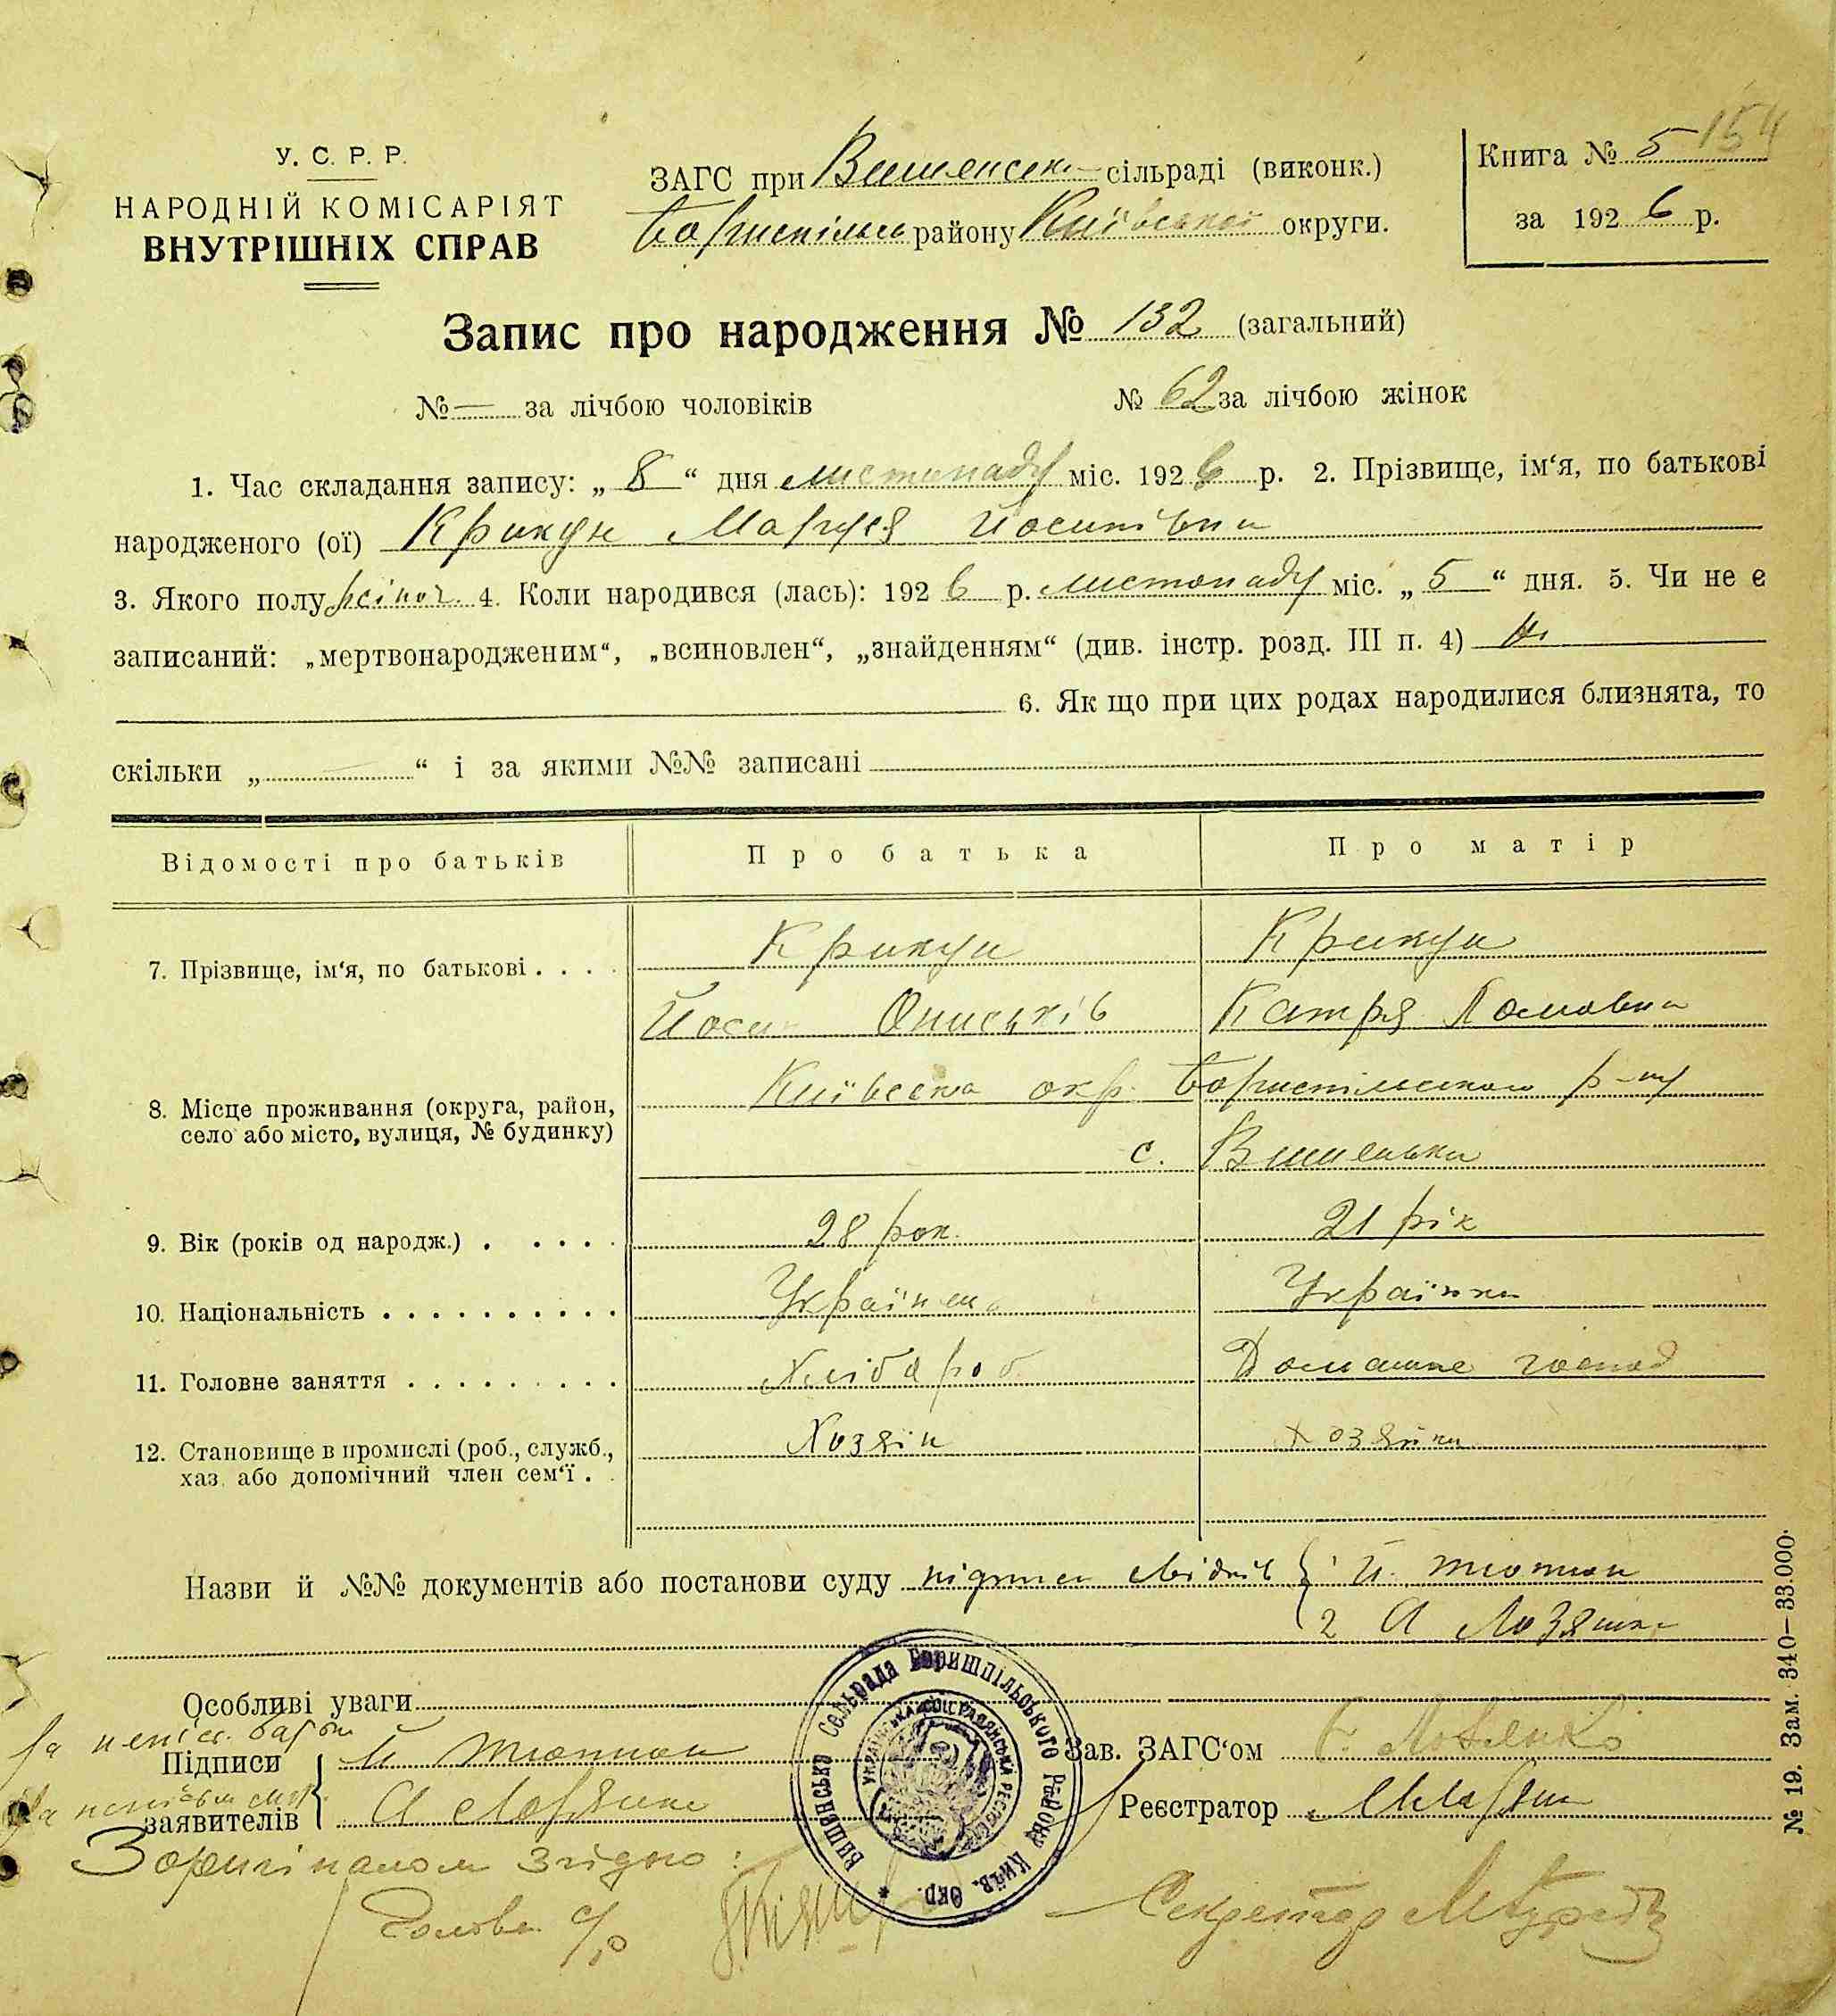 154
У. С. Р. Р.
НАРОДНІЙ КОМІСАРІЯТ
ВНУТРІШНІХ СПРАВ
ЗАГС при Вишенські сільраді (виконк.)
Бориспільськ району Київської округи.
Книга № 5
за 1926 р.
Запис про народження № 132 (загальний)
№ — за лічбою чоловіків № 62 за лічбою жінок
1. Час складання запису: „ 8 “ дня листопаду міс. 1926 р. 2. Прізвище, ім‘я, по батькові
народженого (ої) Крикун Маруся Йосипівна
3. Якого полу жіноч. 4. Коли народився (лась): 1926 р. листопаду міс. „ 5 “ дня. 5. Чи не є
записаний: „мертвонародженим“, „всиновлен“, „знайденням“ (див. інстр. розд. III п. 4) Ні
6. Як що при цих родах народилися близнята, то
скільки „ — “ і за якими №№ записані
Відомості про батьків Про батька Про матір
7. Прізвище, ім‘я, по батькові . . . . Крикун Крикун
Йосип Ониськів Катря
8. Місце проживання (округа, район, Київська окр. Бориспільського р-ну
село або місто, вулиця, № будинку)
с. Вишеньки
9. Вік (років од народж.) . . . . . 28 рок. 21 рік
10. Національність . . . . . . . . . . Українець Українка
11. Головне заняття . . . . . . . . . Хлібороб. Домашнє господ
12. Становище в промислі (роб., служб., Хозяїн Хозяйка
хаз. або допомічний член сем‘ї . .
Назви й №№ документів або постанови суду підписи свідків { 1 Й. Тютюн
2 А Лозяшко
Особливі уваги
За неписьм.
Підписи Й Тютюн
заявителів А
Зав. ЗАГС‘ом
Реєстратор
Вишенська Сельрада Боришпільського Району Київ. Окр.
З оригіналом згідно:
Голова с/р
Секретар
№ 19. Зам. 340—33.000.